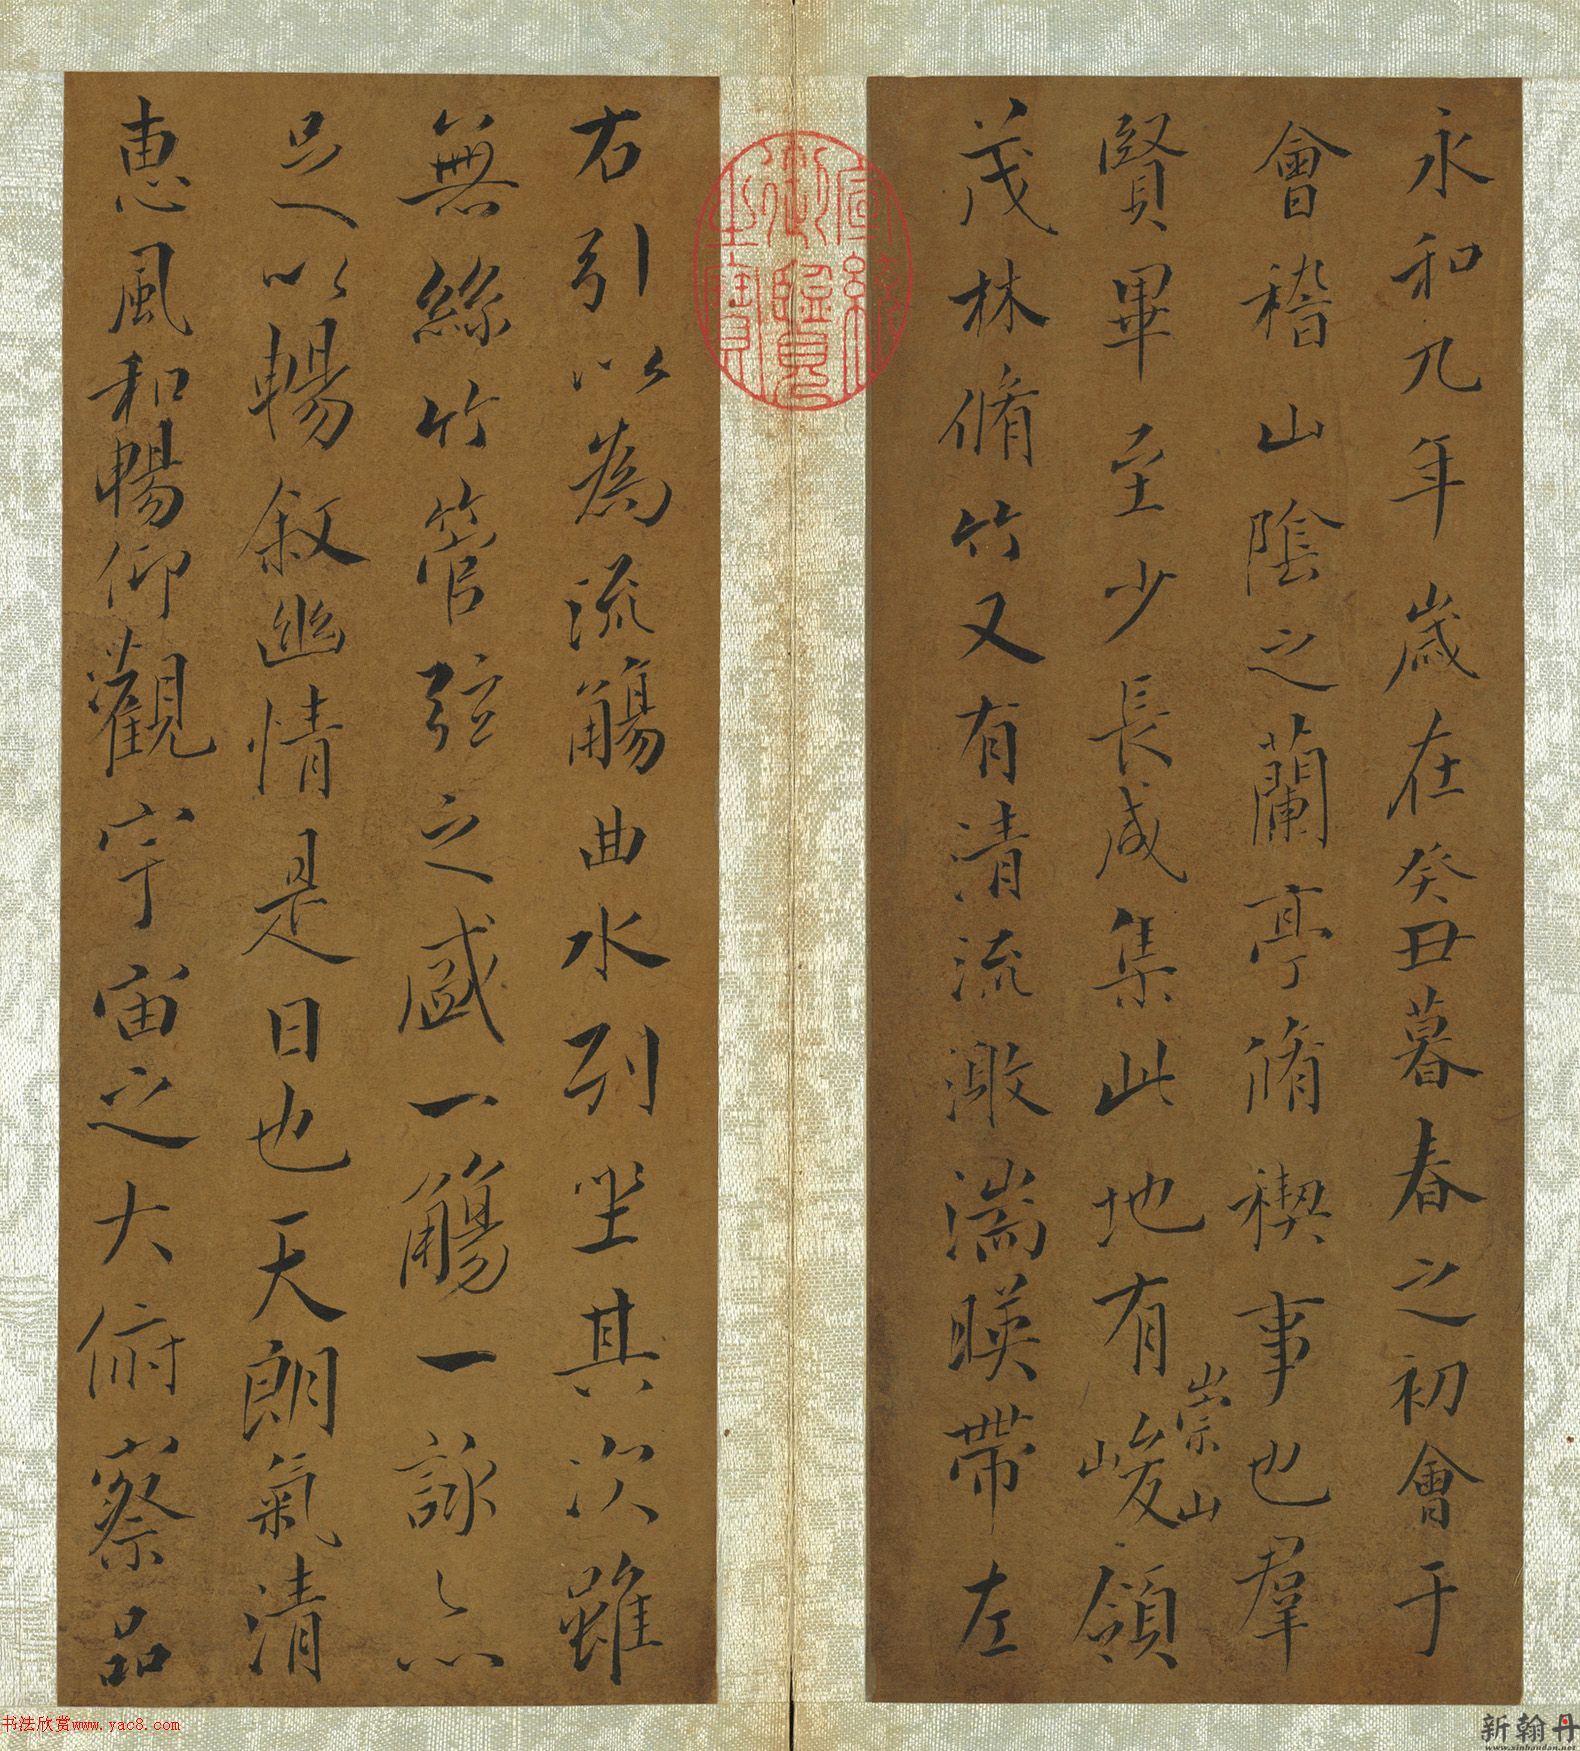 永和九年歲在癸丑暮春之初會于
會稽山陰之蘭亭脩稧事也羣
賢畢至少長咸集此地有崇山峻領
茂林脩竹又有清流激湍暎帶左
宣統
御覽
之寶
右引以為流觴曲水列坐其次雖
無絲竹管弦之盛一觴一詠亦
足以暢叙幽情是日也天朗氣清
惠風和暢仰觀宇宙之大俯察品
书法欣赏www.yac8.com
新翰丹
www.xinhandan.net